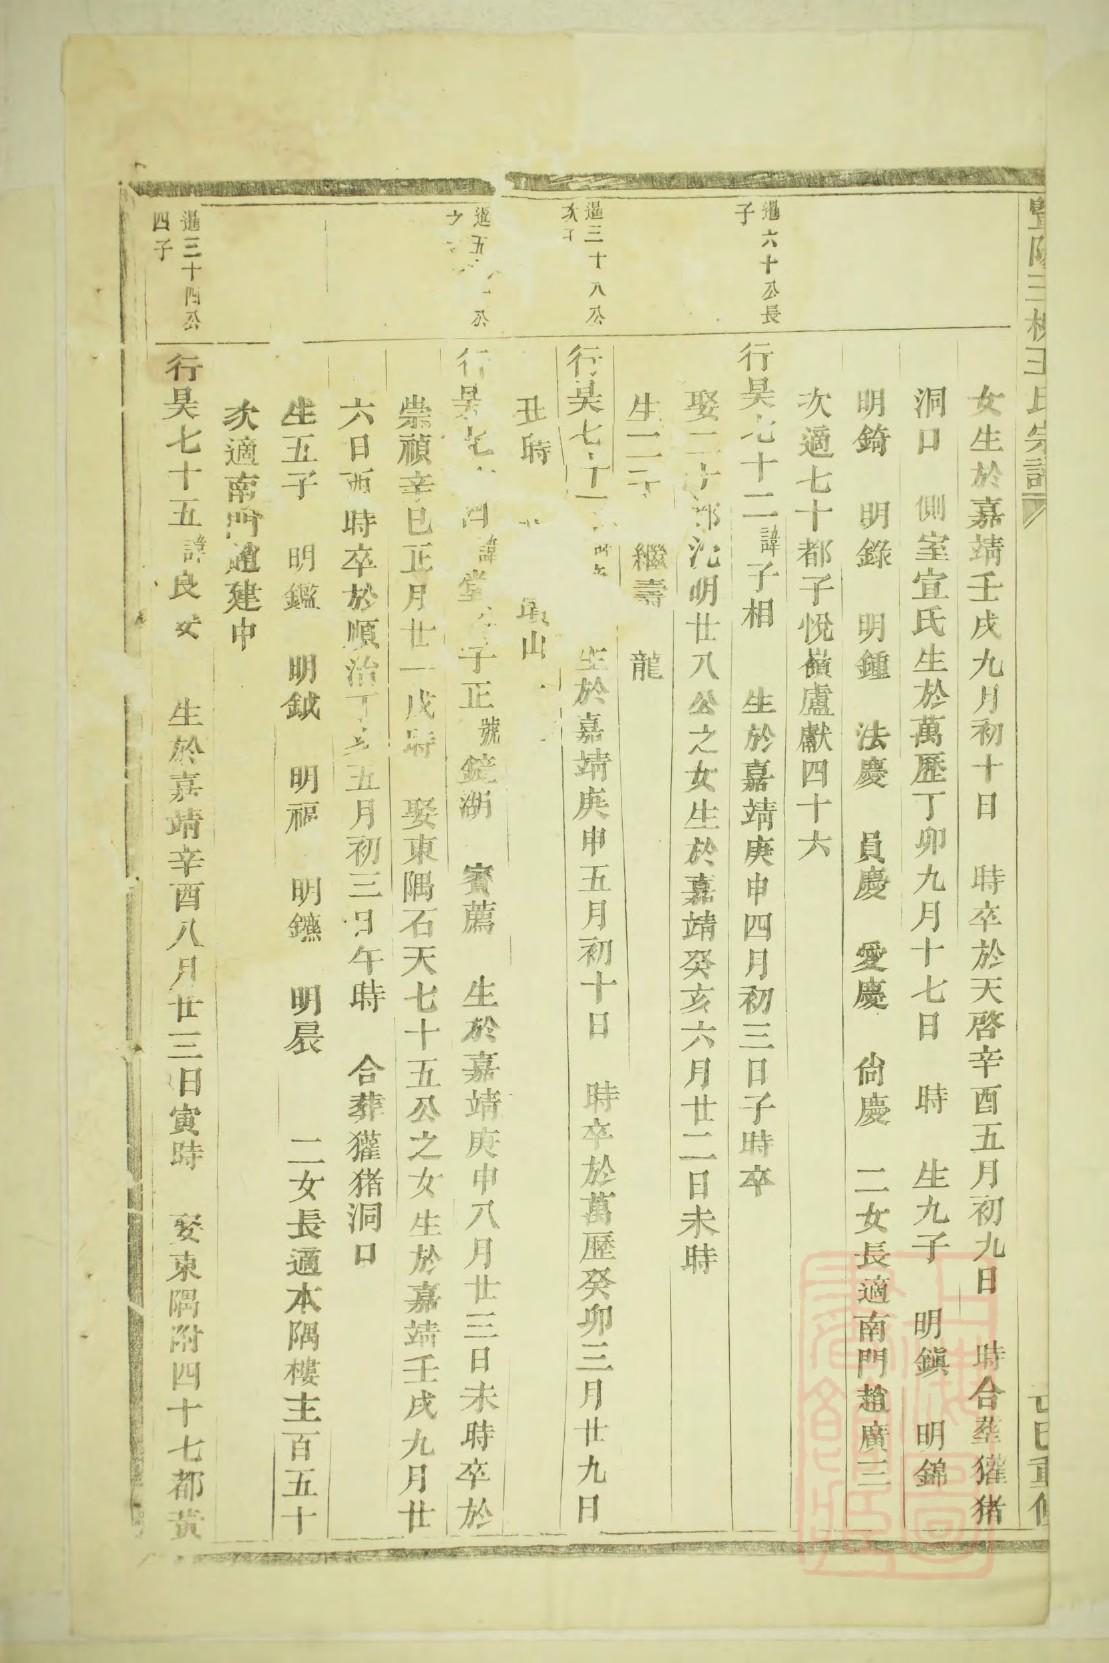 王氏宗譜
重修
女生於嘉靖壬戌九月初十日 時卒於天啓辛酉五月初九日 時合塟獾猪
洞口 側室宣氏生於萬歷丁卯九月十七日 時 生九子 明鎭 明錦
明錡 明錄 明鍾 法慶 員慶 愛慶 尙慶 二女長適南門趙廣三
次適七十都子悅嶺盧獻四十六
暹六十公長
子
行昊七十二諱子相 生於嘉靖庚申四月初三日子時卒
娶二十都沈明廿八公之女生於嘉靖癸亥六月廿二日未時
生二子 繼壽 龍
暹三十八公
次子
行昊七十 生於嘉靖庚申五月初十日 時卒於萬歷癸卯三月廿九日
丑時 山
暹五 公
之
行昊七 諱堂 子正號鏡湖 賓薦 生於嘉靖庚申八月廿三日未時卒於
崇禎辛巳正月廿一戌時 娶東隅石天七十五公之女生於嘉靖壬戌九月廿
六日酉時卒於順治丁亥五月初三日午時 合葬獾猪洞口
生五子 明鑑 明鉞 明福 明鑣 明晨 二女長適本隅樓主百五十
次適南門趙建中
暹三十四公
四子
行昊七十五諱良 生於嘉靖辛酉八月廿三日寅時 娶東隅附四十七都黃